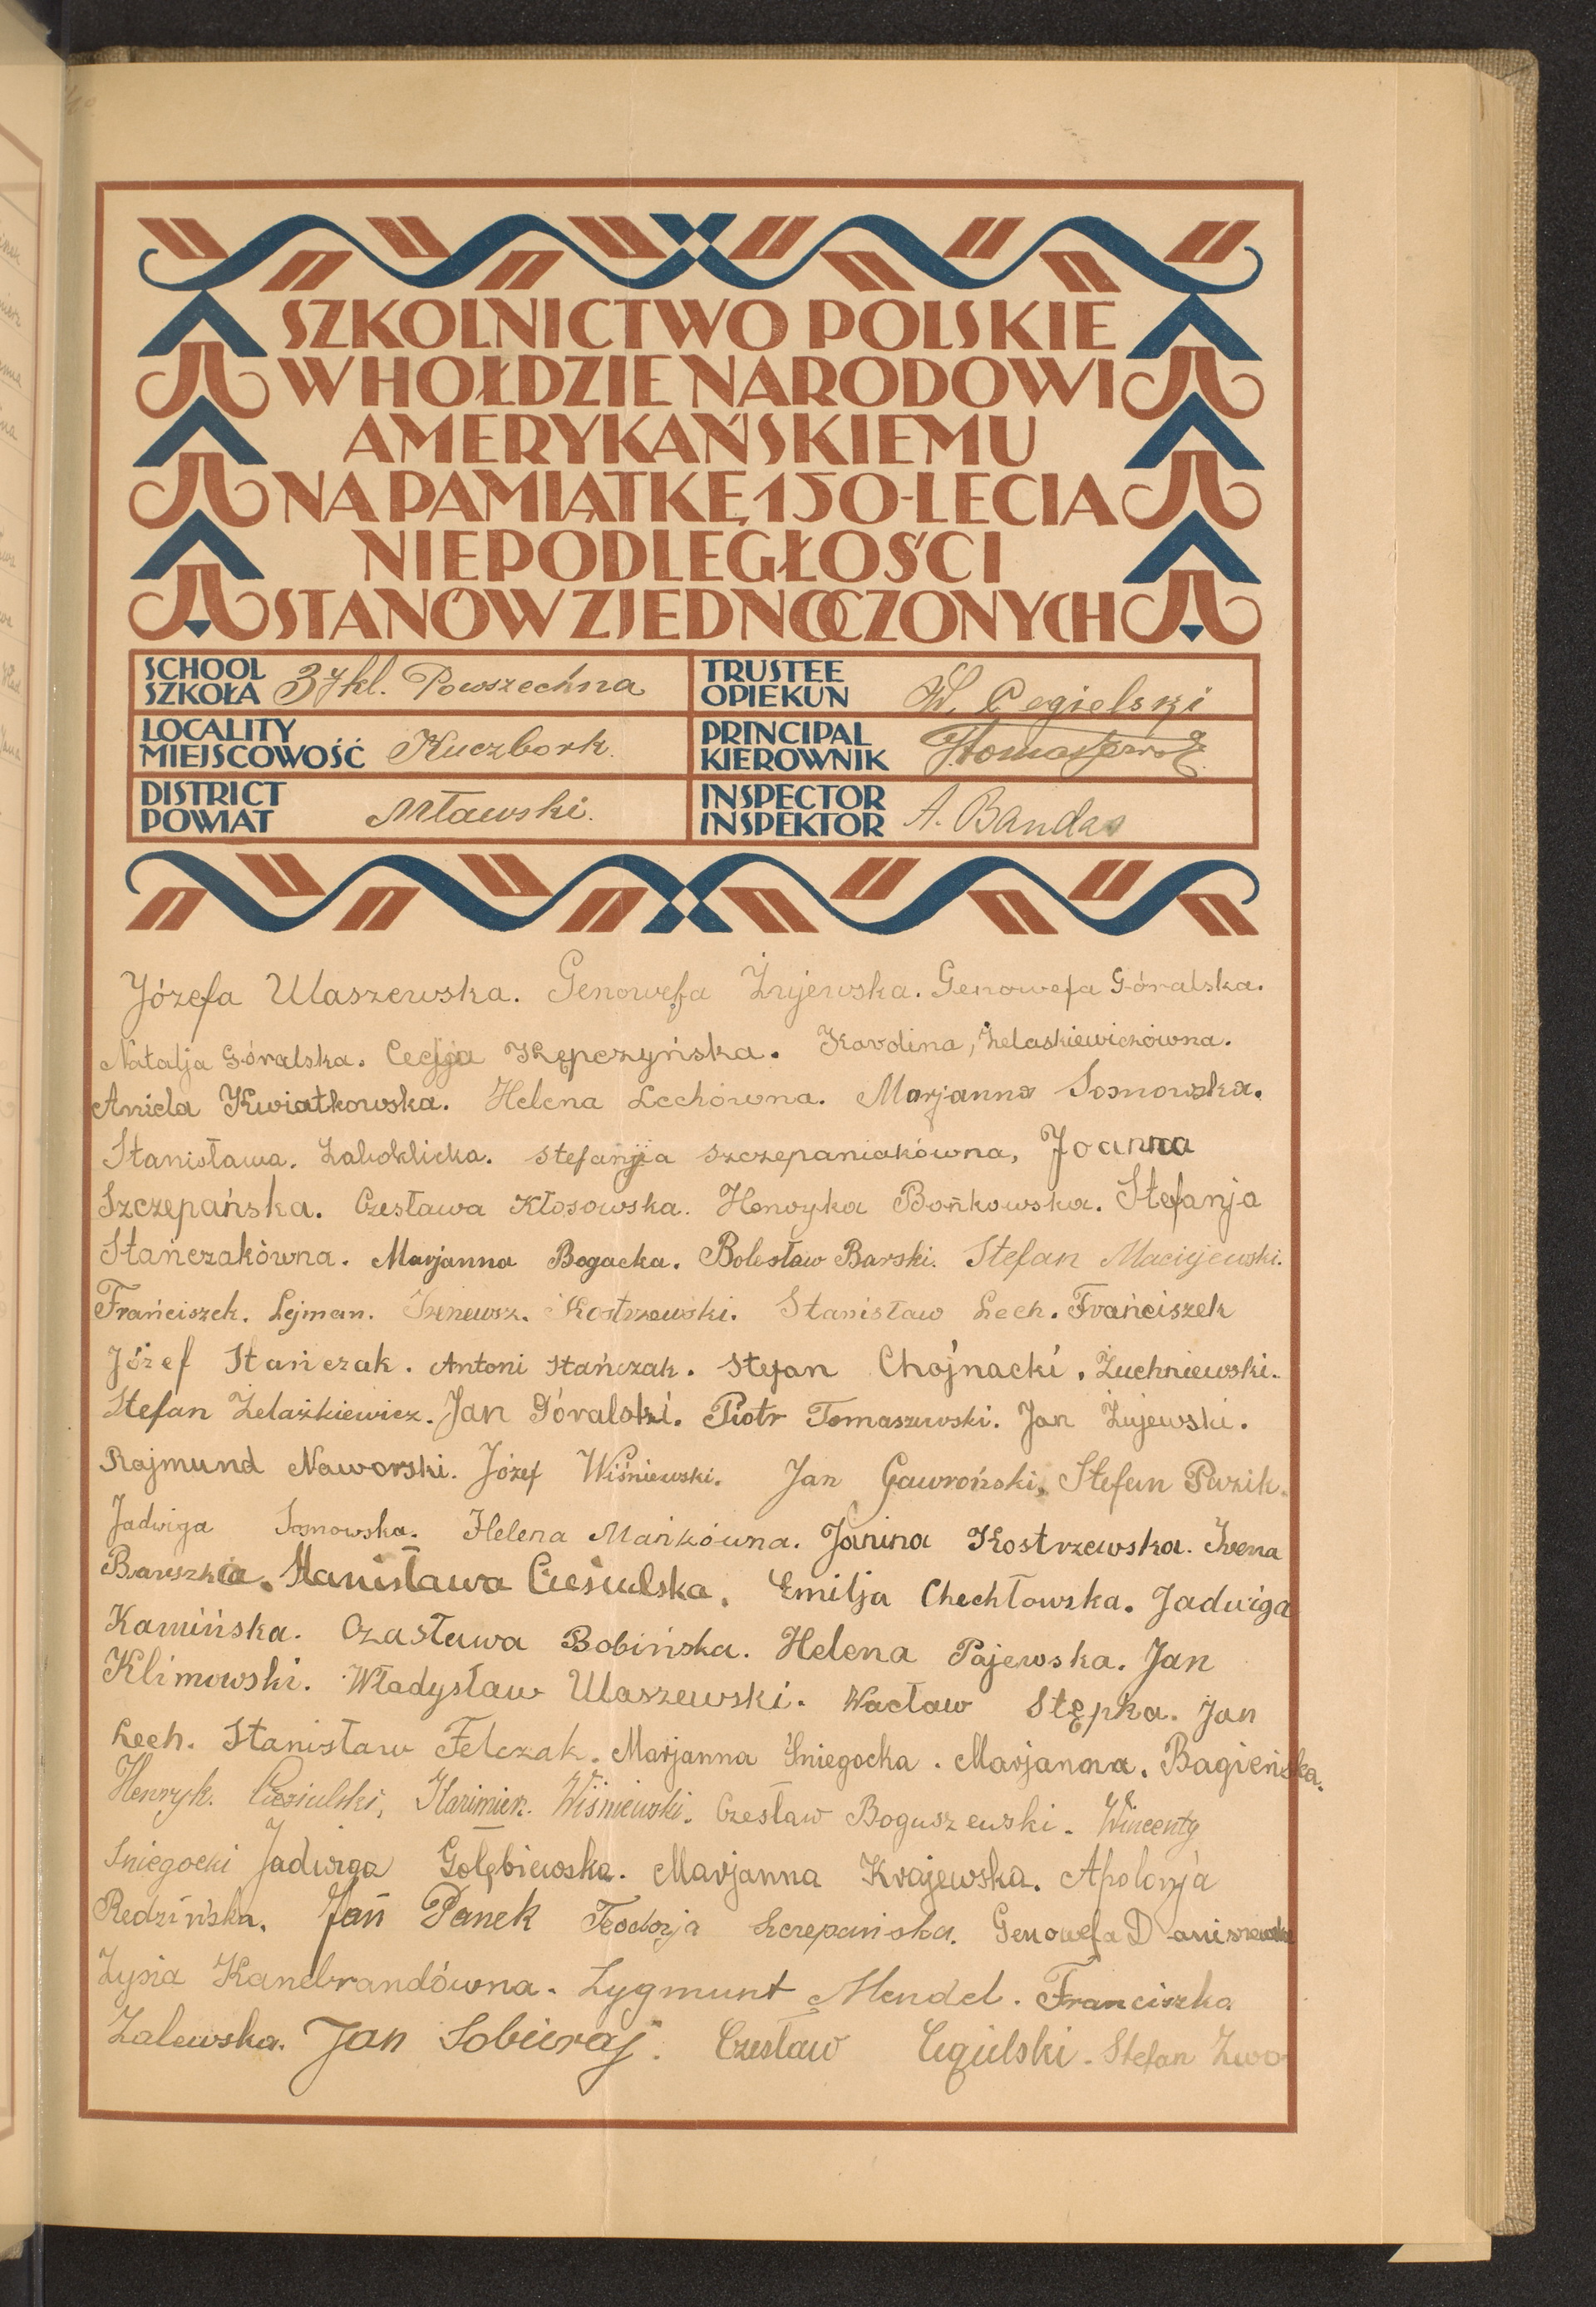 SZKOLNICTWO POLSKIE
W HOŁDZIE NARODOWI
AMERYKAŃSKIEMU
NA PAMIĄTKĘ 150-LECIA
NIEPODLEGŁOŚCI
STANÓW ZJEDNOCZONYCH
SCHOOL
SZKOŁA 3 kl. Powszechna
LOCALITY
MIEJSCOWOŚĆ Kuczbork.
DISTRICT
POWIAT Mławski.
TRUSTEE
OPIEKUN W. Cegielski
PRINCIPAL
KIEROWNIK
INSPECTOR
INSPEKTOR A. Bandas
Józefa Ulaszewska. Genowefa Żujewska. Genowefa Góralska.
Natalja Góralska. Kępczyńska. Karolina, Żelaskiewiczówna.
Aniela Kwiatkowska. Helena Lechówna. Marjanna Sosnowska.
Stanisława. Zaboklicka. Stefanja Szczepaniakówna, Joanna
Szczepańska. Czesława Kłosowska. Henryka Bońkowska. Stefanja
Stańczakówna. Marjanna Bogacka. Bolesław Barski. Stefan Maciejewski.
Frańciszek. Lejman. Kostrzewski. Stanisław Lech. Frańciszek
Józef Stańczak. Antoni Stańczak. Stefan Chojnacki. Żuchniewski.
Stefan Żelazkiewicz. Jan Góralski. Piotr Tomaszewski. Jan Żujewski.
Rajmund Naworski. Józef Wiśniewski. Jan Gawroński, Stefan Pazik.
Jadwiga Sosnowska. Helena Mańkówna. Janina Kostrzewska. Irena
Stanisława Ciesiulska. Emilja Chechłowska. Jadwiga
Kamińska. Czasława Bobińska. Helena Pajewska. Jan
Klimowski. Władysław Ulaszewski. Wacław Stępka. Jan
Lech. Stanisław Felczak. Marjanna Śniegocka. Marjanna. Bagieńska.
Henryk. Ciesiulski, Kazimierz. Wiśniewski. Czesław Boguszewski. Wincenty
Śniegocki Jadwiga Gołębiewska. Marjanna Krajewska. Apolonja
Redzińska. Jań Panek Teodozja Szczepańska. Genowefa Daniszewska
Zysia Kanebrandówna. Zygmunt Mendel. Franciszka
Zalewska. Jan Sobieraj. Czesław Cegielski. Stefan